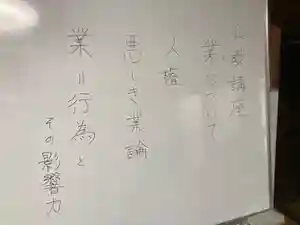 仏教講座
業について
人権
悪しき業論
業=行為と
その影響力